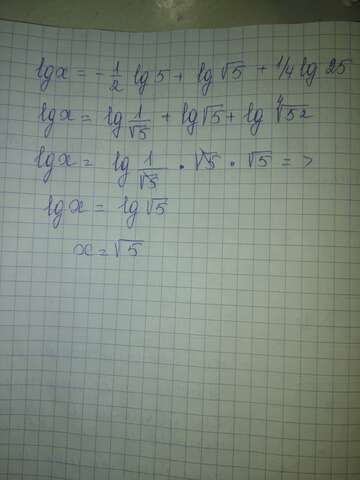 lgx = -1/2 lg5 + lg√5 + 1/4 lg 25
lgx = lg 1/√5 + lg√5 + lg ∜5²
lgx = lg 1/√5 · √5 · √5 = >
lgx = lg√5
x = √5